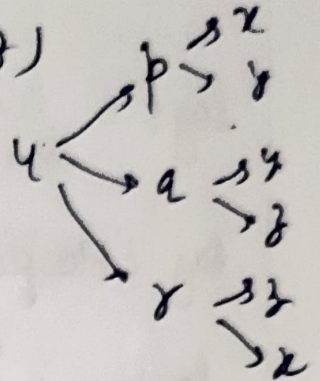 u → p → x
→ y
→ q → y
→ z
→ r → z
→ x